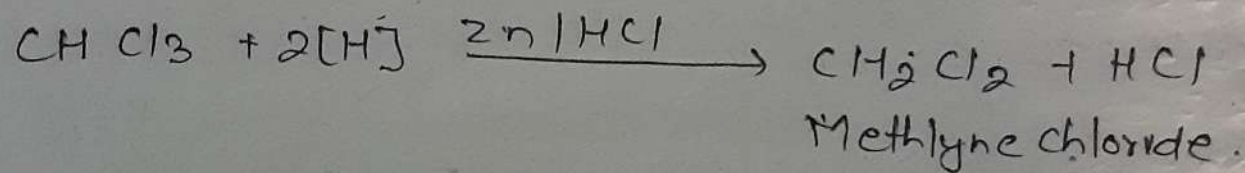 CHCl3 + 2[H] Zn/HCl → CH2Cl2 + HCl
Methlyne chloride.